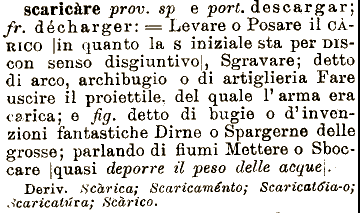 scaricàre prov. sp e port. descargar;
fr. décharger: = Levare o Posare il CÀ-
RICO |in quanto la S iniziale sta per DIS-
con senso disgiuntivo|, Sgravare; detto
di arco, archibugio o di artiglieria Fare
uscire il proiettile, del quale l'arma era
carica; e fig. detto di bugio o d'inven-
zioni fantastiche Dirne o Spargerne delle
grosse; parlando di fiumi Mettere o Sboc-
care |quasi deporre il peso delle acque|.
Deriv. Scàrica; Scaricaménto; Scaricatóia-o;
Scaricatúra; Scàrico.